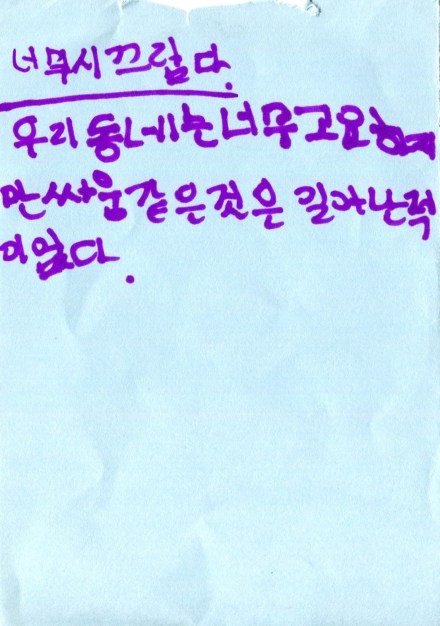 너무시끄럽다.
우리동네는너무고요하지
만싸움같은것은 일어난적
이없다.